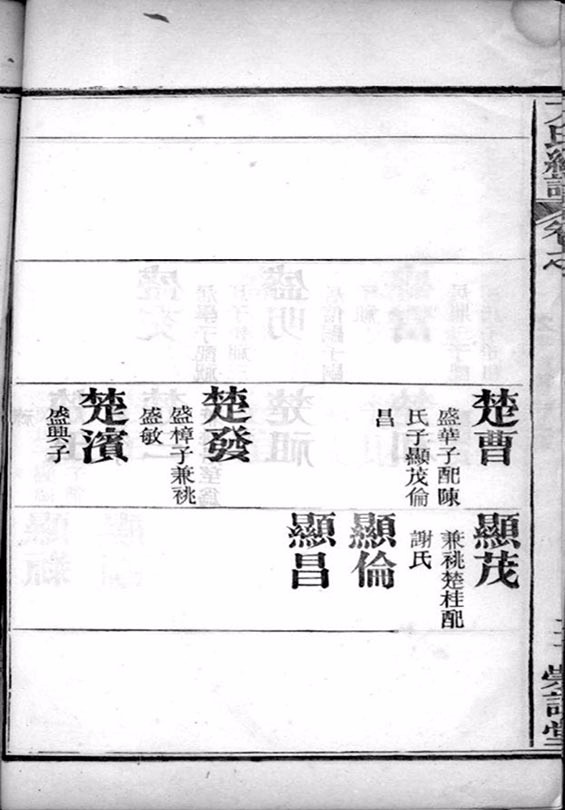 楚曹
盛華子配陳
氏子顯茂倫
昌
楚發
盛樟子兼祧
盛敏
楚濱
盛興子
顯茂
兼祧楚桂配
謝氏
顯倫
顯昌